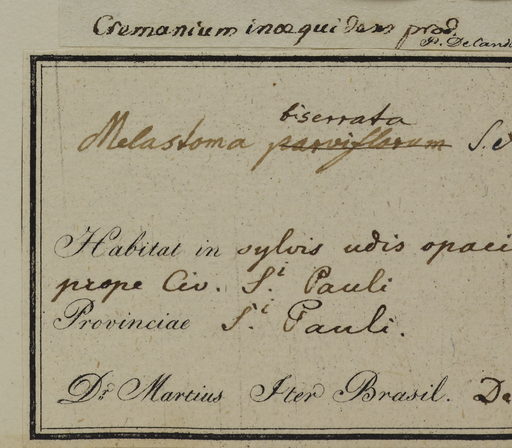 Cremanium inæquidens prod.
P. Decand
biserrata
Melastoma parviflorum S. &
Habitat in sylvis udis opaci
prope Civ. S.i Pauli
Provinciae S.i Pauli.
Dr. Martius Iter Brasil. De